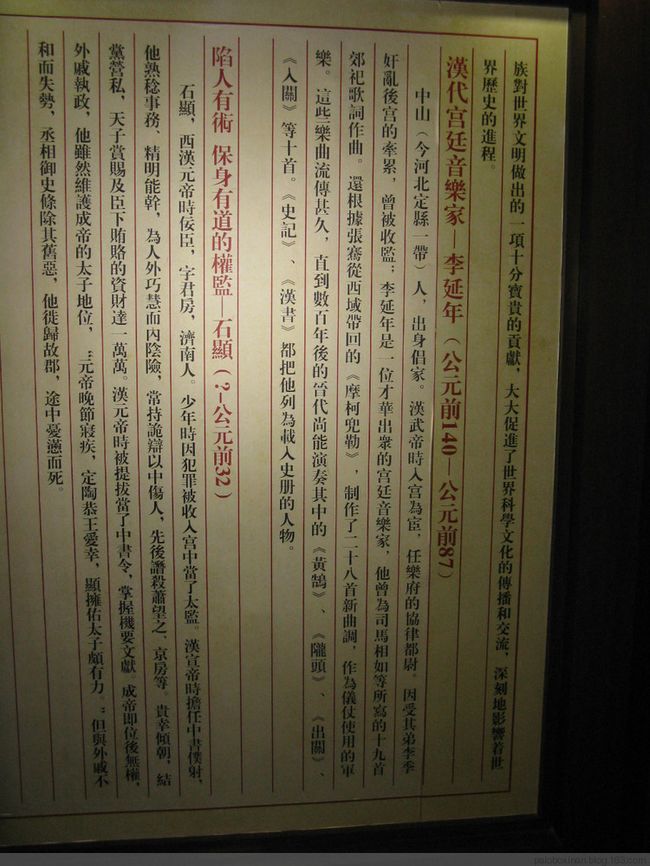 族對世界文明做出的一項十分寶貴的貢獻，大大促進了世界科學文化的傳播和交流，深刻地影響着世
界歷史的進程。
漢代宮廷音樂家—李延年（公元前140—公元前87）
中山（今河北定縣一帶）人，出身倡家。漢武帝時入宮為宦，任樂府的協律都尉。因受其弟李季
奸亂後宮的牽累，曾被收監；李延年是一位才華出衆的宮廷音樂家，他曾為司馬相如等所寫的十九首
郊祀歌詞作曲。還根據張騫從西域帶回的《摩柯兜勒》，制作了二十八首新曲調，作為儀仗使用的軍
樂。這些樂曲流傳甚久，直到數百年後的晉代尚能演奏其中的《黃鵠》、《隴頭》、《出關》、
《入關》等十首。《史記》、《漢書》都把他列為載入史册的人物。
陷人有術 保身有道的權監—石顯（?-公元前32）
石顯，西漢元帝時佞臣，字君房，濟南人。少年時因犯罪被收入宮中當了太監。漢宣帝時擔任中書僕射，
他熟稔事務、精明能幹，為人外巧慧而內陰險，常持詭辯以中傷人，先後譖殺蕭望之、京房等。貴幸傾朝，結
黨營私，天子賞賜及臣下賄賂的資財達一萬萬。漢元帝時被提拔當了中書令，掌握機要文獻。成帝即位後無權，
外戚執政，他雖然維護成帝的太子地位，“元帝晚節寢疾，定陶恭王愛幸，顯擁佑太子頗有力”。但與外戚不
和而失勢，丞相御史條除其舊惡，他徙歸故郡，途中憂懣而死。
paloboxinan.blog.163.com